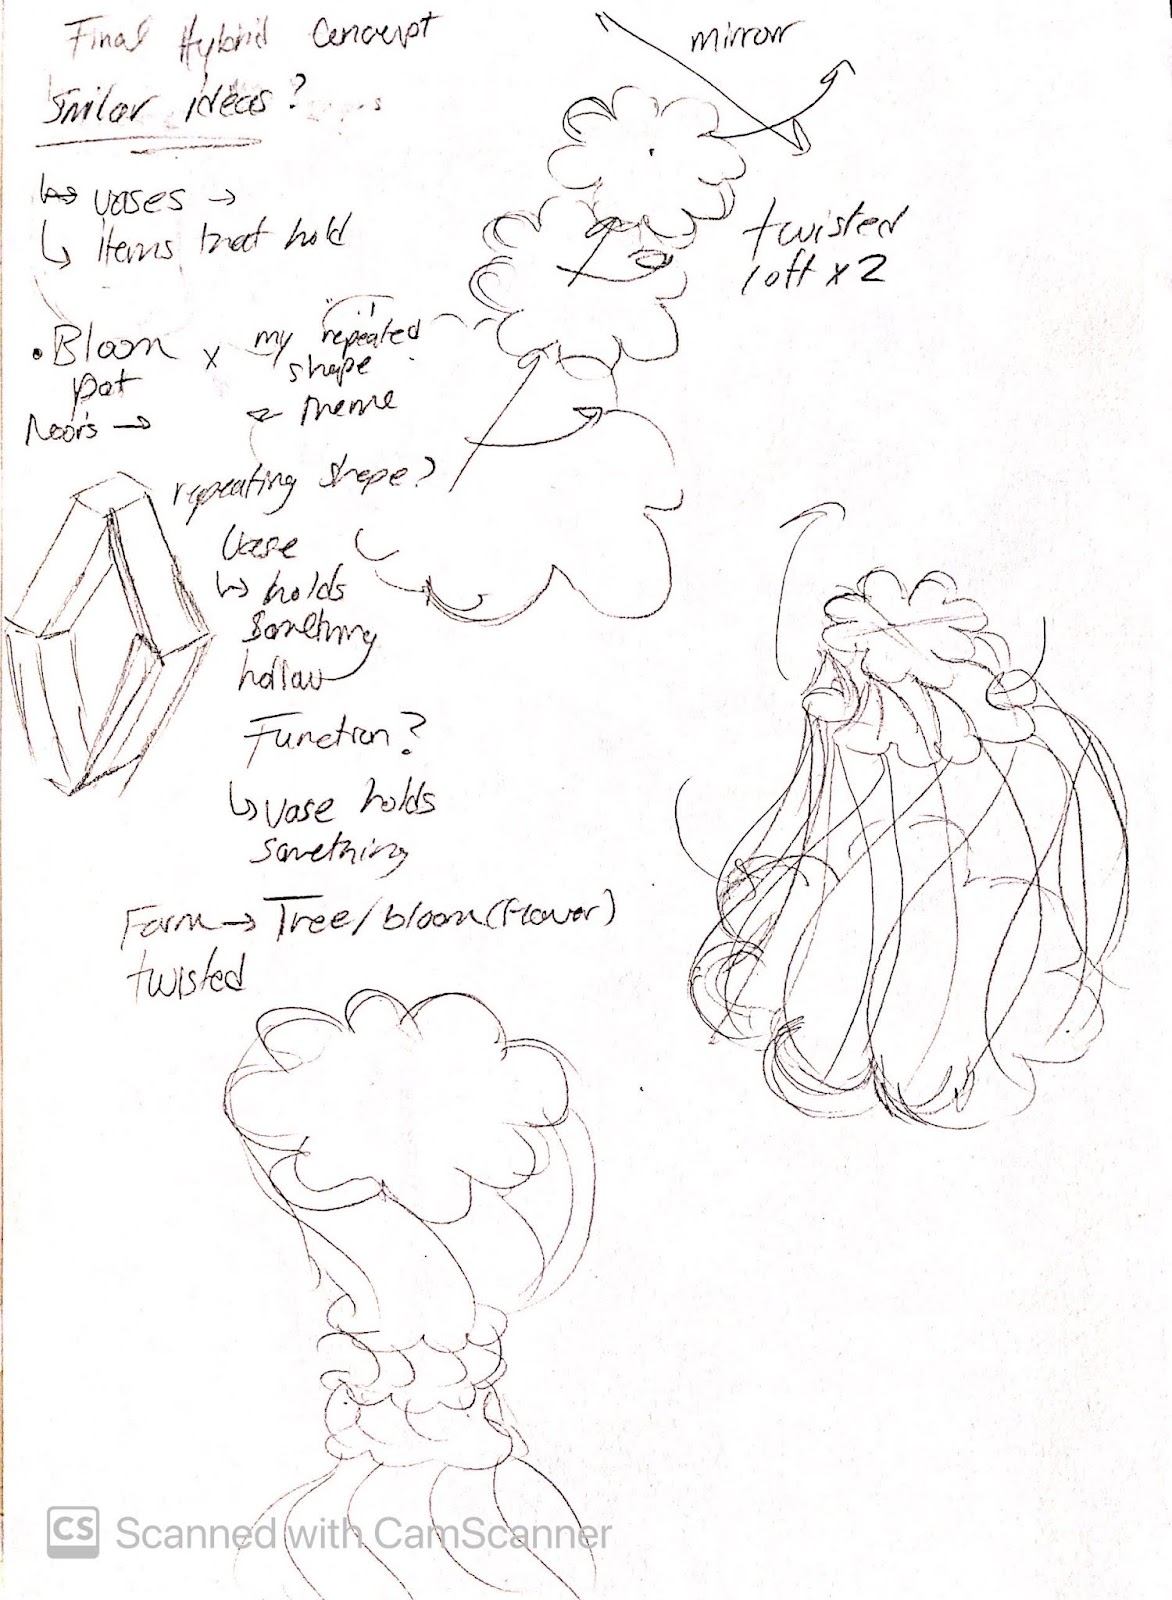 Final Hybrid Concept
Similar ideas?
↳ vases →
↳ items that hold
• Bloom x my "repeated
pot shape
Noor's → ← theme
repeating shape?
Vase
↳ holds
Something
hollow
Function?
↳ vase holds
something
Form → Tree/bloom(flower)
twisted
mirror
twisted
loft x2
CS Scanned with CamScanner